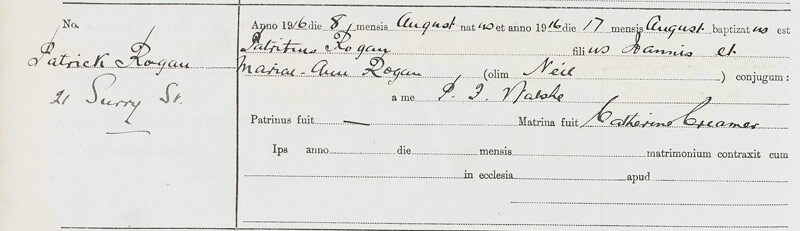 No. Anno 1916 die 8 mensis August natus et anno 1916 die 17 mensis August baptizatus est
Patrick Rogan Patritius Rogan filius Joannis et
21 Surry St. Mariae-Ann Rogan (olim Neil) conjugum:
a me P. J. Walshe
Patrinus fuit — Matrina fuit Catherine Creamer
Ips anno die mensis matrimonium contraxit cum
in ecclesia apud